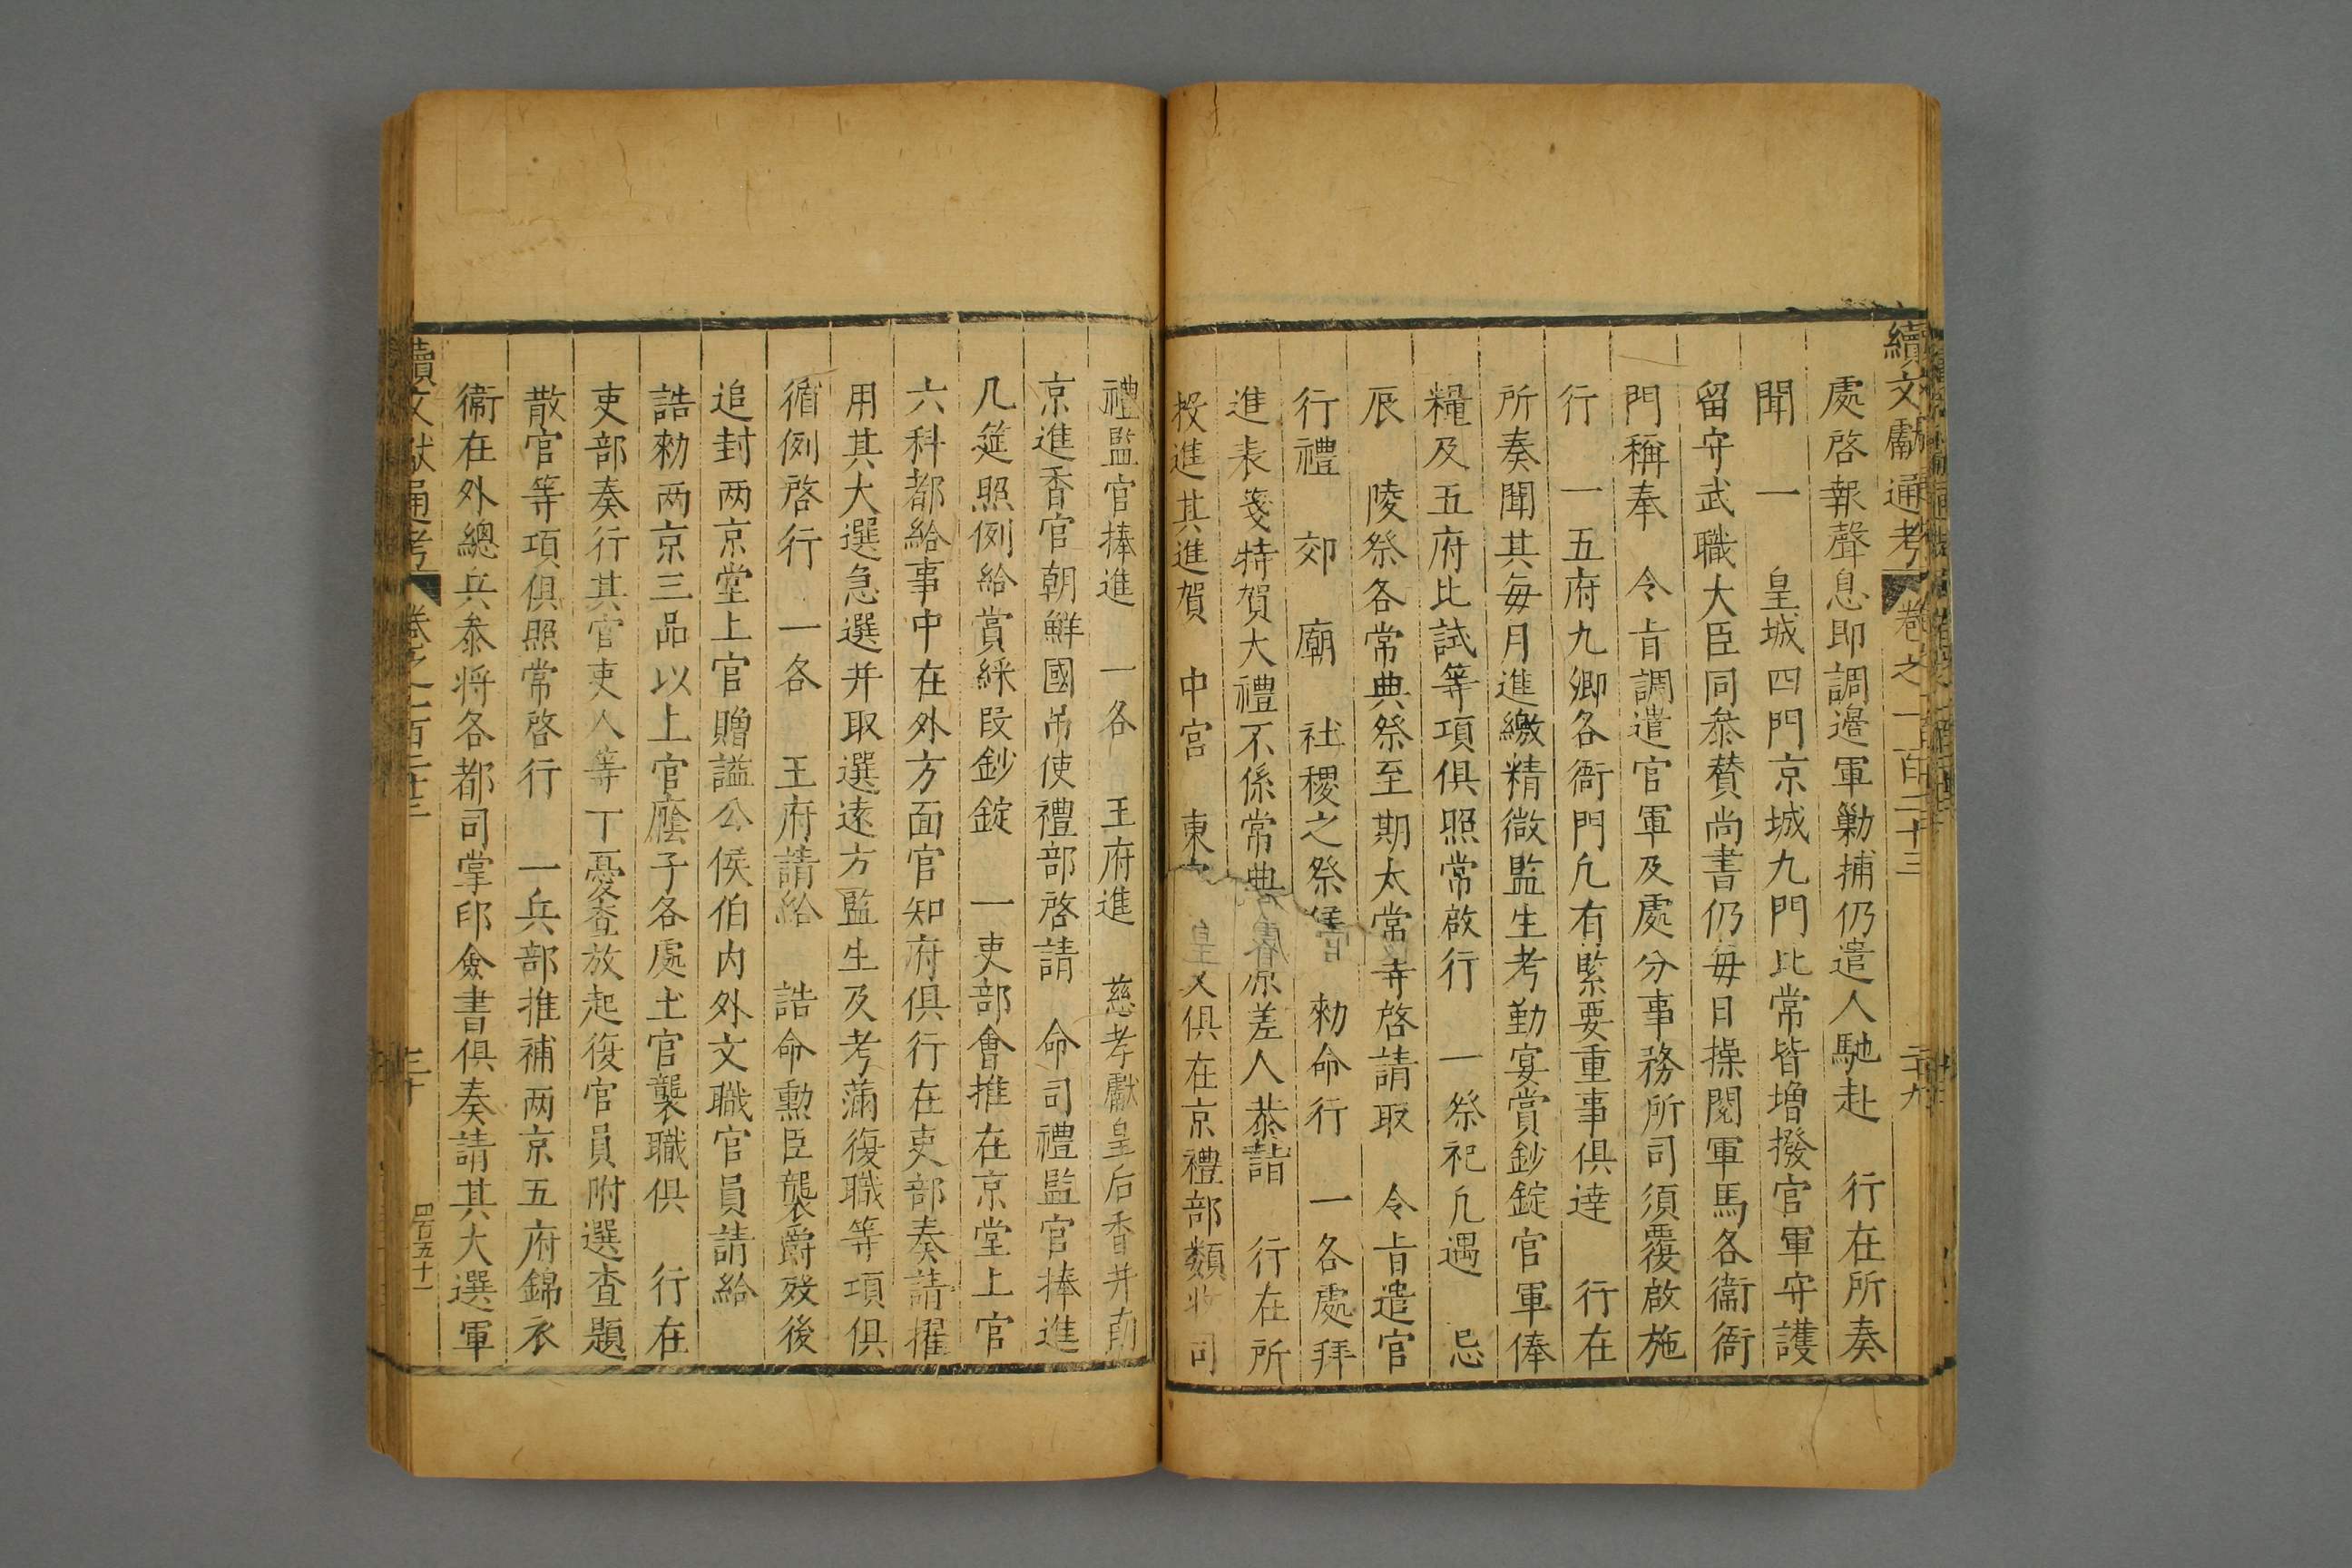 續文獻通考 卷之一百二十三 二十九
處啓報聲息即調邊軍勦捕仍遣人馳赴 行在所奏
聞 一 皇城四門京城九門比常皆增撥官軍守護
留守武職大臣同叅賛尚書仍每日操閱軍馬各衞衙
門稱奉 令旨調遣官軍及處分事務所司須覆啟施
行 一五府九卿各衙門凢有緊要重事俱達 行在
所奏聞其每月進繳精微監生考勤宴賞鈔錠官軍俸
糧及五府比試等項俱照常啟行 一祭祀凢遇 忌
辰 陵祭各常典祭至期太常寺啓請取 令旨遣官
行禮 郊 廟 社稷之祭 勑命行 一各處拜
進表箋特賀大禮不係常典 原差人恭詣 行在所
投進其進賀 中宮 東 俱在京禮部類 司
禮監官捧進 一各 王府進 慈孝獻皇后香并南
京進香官朝鮮國吊使禮部啓請 命司禮監官捧進
几筵照例給賞綵叚鈔錠 一吏部會推在京堂上官
六科都給事中在外方面官知府俱行在吏部奏請擢
用其大選急選并取選遠方監生及考滿復職等項俱
循例啓行 一各 王府請給 誥命勲臣襲爵歿後
追封两京堂上官贈謚公侯伯内外文職官員請給
誥勑两京三品以上官廕子各處土官襲職俱 行在
吏部奏行其官吏人等丁憂查放起復官員附選查題
散官等項俱照常啓行 一兵部推補两京五府錦衣
衞在外總兵叅將各都司掌印僉書俱奏請其大選軍
續文獻通考 卷之一百二十三 三十 四百五十一